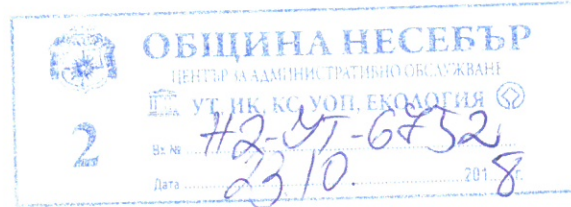 ОБЩИНА НЕСЕБЪР
ЦЕНТЪР ЗА АДМИНИСТРАТИВНО ОБСЛУЖВАНЕ
УТ, ИК, КС, УОП, ЕКОЛОГИЯ
2
Вх. № Н2-УТ-6752
Дата 23 10. 2018 г.